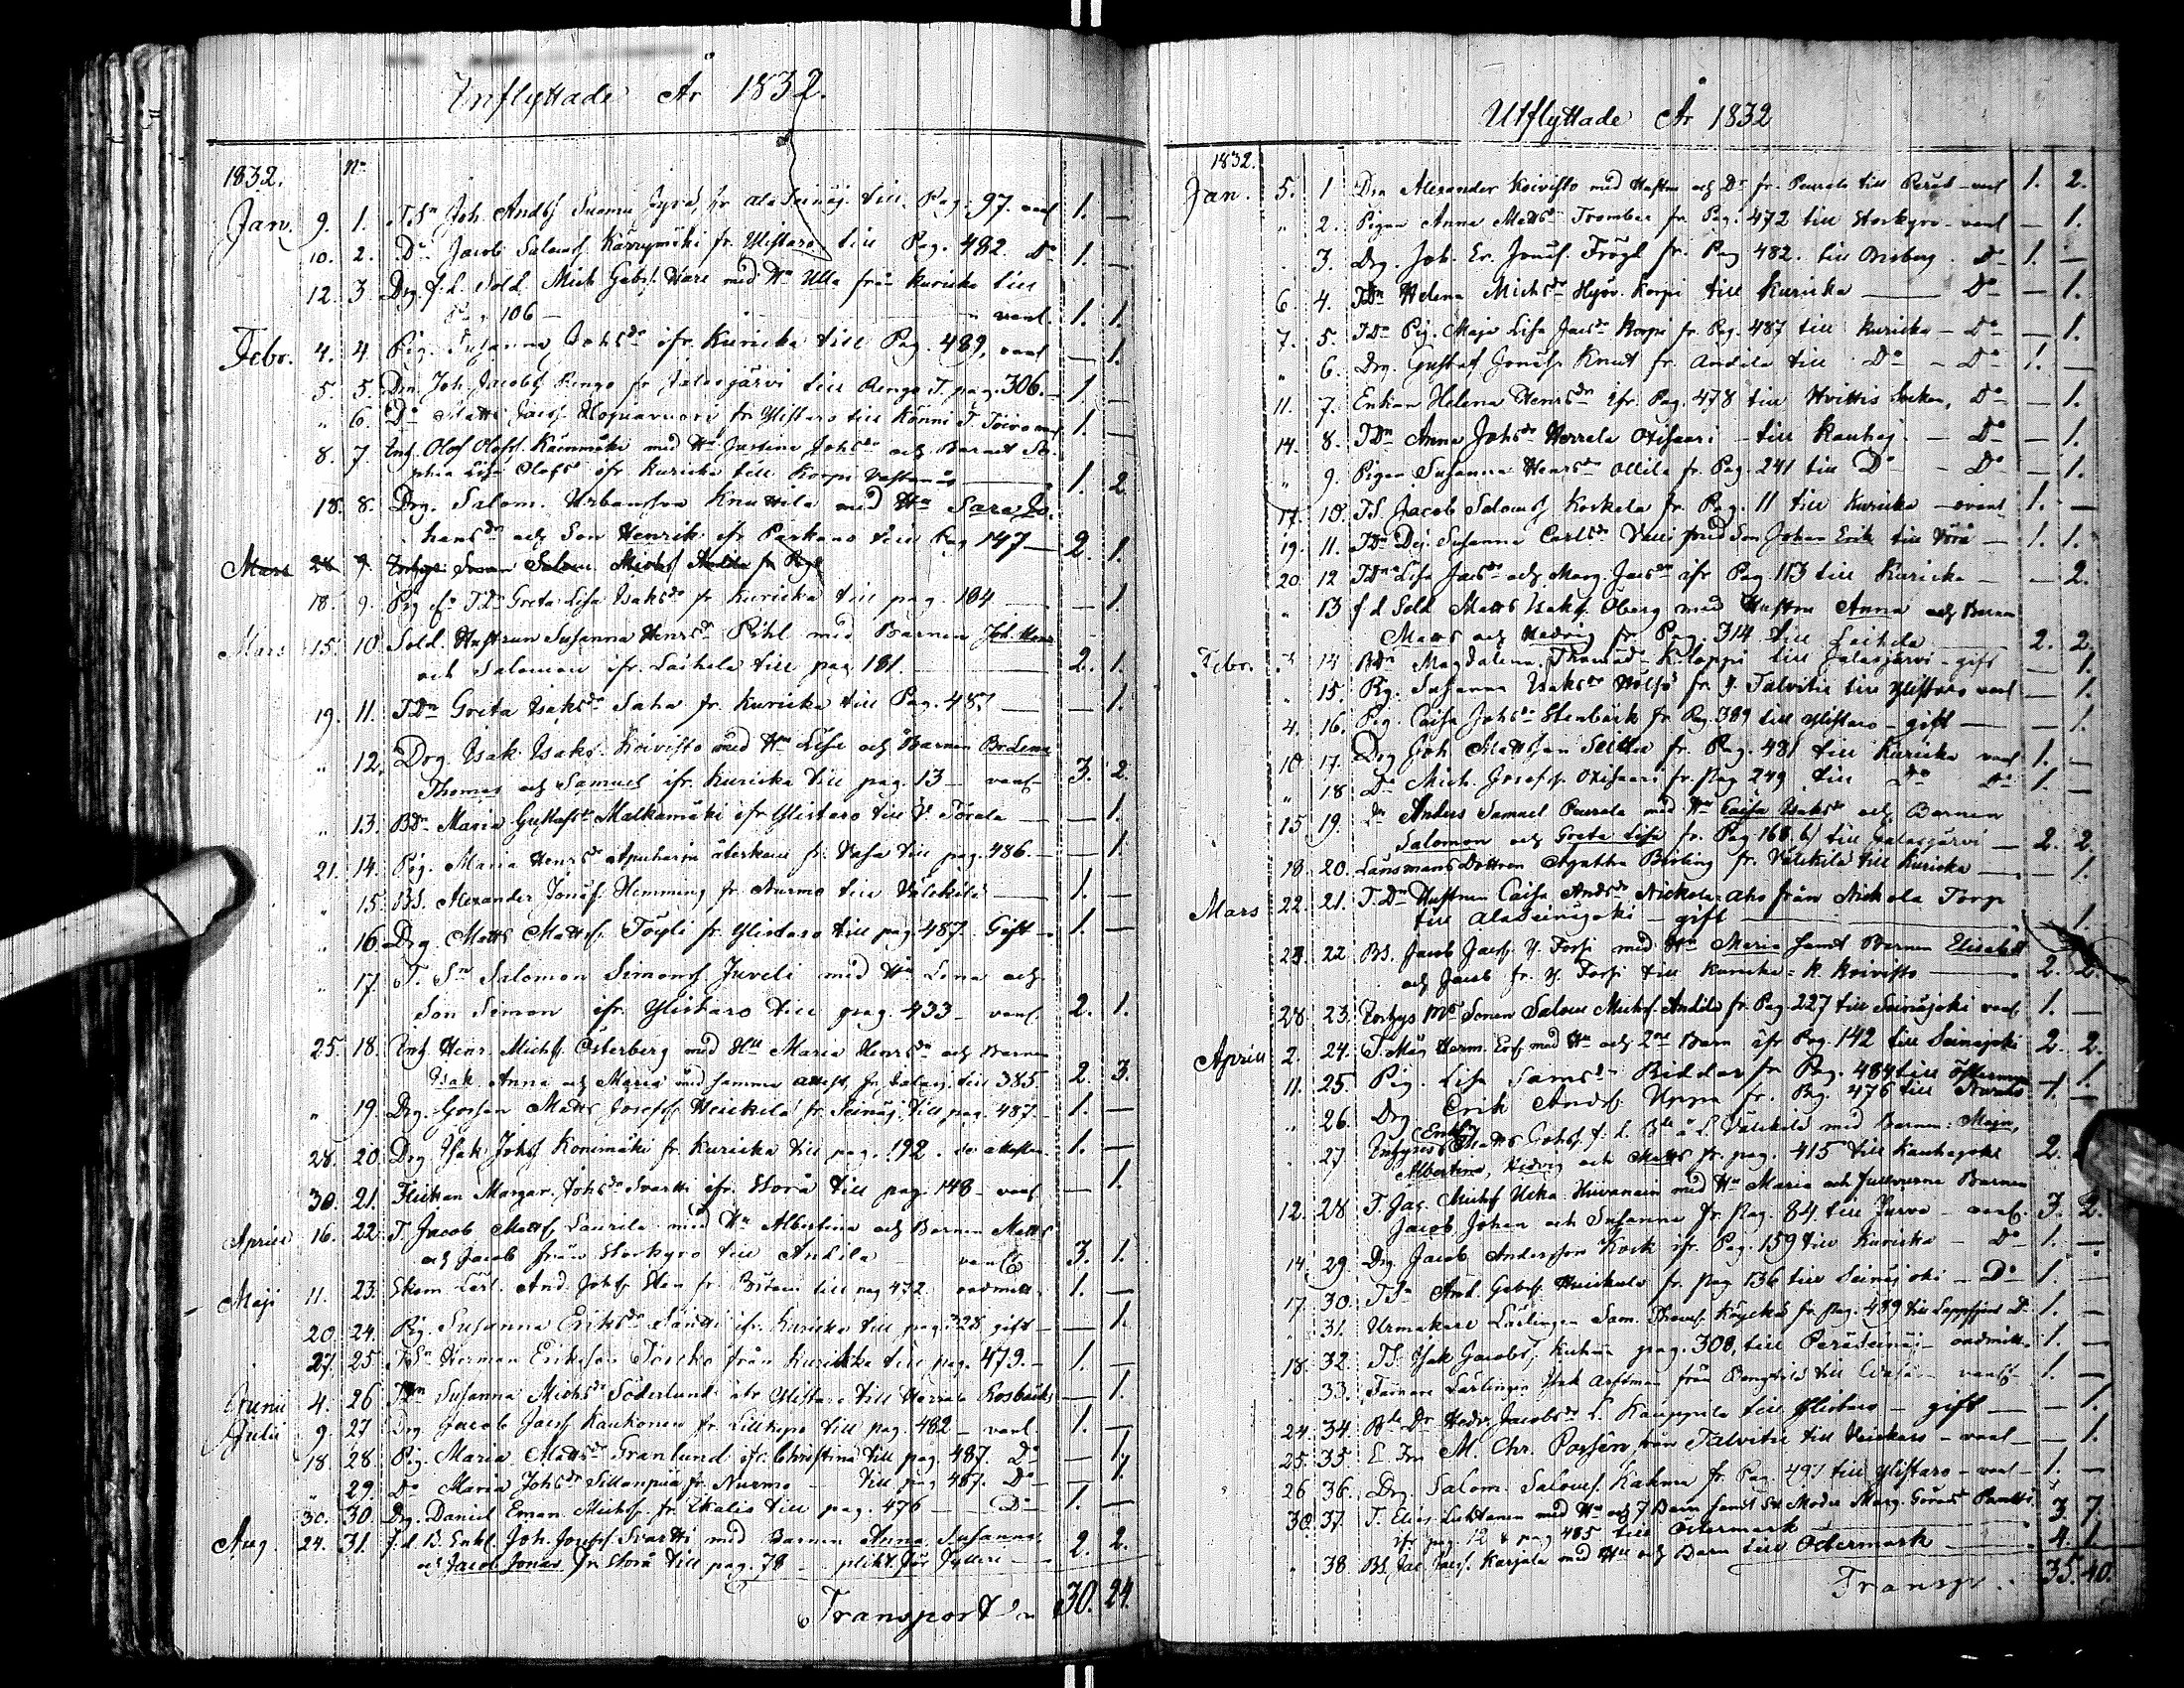 Inflyttade År 1832.
1832. No
Jan. 9. 1. T.Sn Joh. Andsf Suomu Jyrä, fr Ala Seinäj. till Pag. 97. vanl 1. —
10. 2. Do Jacob Salomsf Karrymäki fr. Ylistaro till Pag. 482. Do 1. —
12. 3. Drg f.d. Sold. Mich Gabrsf. Hare med Hu Ulla från Kuricka till
Pag 106 — vanl. 1. 1.
Febr. 4. 4. Pig. Susanna Johsdr ifr. Kuricka till Pag. 489. vanl — 1.
5. 5. Drn. Joh. Jacobsf Rengo fr Jalasjärvi till Rengo T. pag. 306. 1. —
" 6. Do Matts Jacsf. fr. Ylistaro till Könni T. 1. —
8. 7. Inh. Olof Olofsf. Kammäki med Hu Justina Johsdr och Barnet So-
phia Lisa Olofsdr ifr Kuricka till Korpi 1. 2
18. 8. Drg. Salom. Urbansson Knuttila med Hu Sara Jo-
hansdr och Son Henrik ifr Parkano till Pag 147 — 2. 1.
Mars 28 9. Salom Michsf Andila fr Pag
18. 9. Pig Greta Lisa Isaksdr fr Kuricka till pag. 184 — 1.
Mars 15. 10 Sold. Hustrun Susanna Henrsdr Pihl med Barnen Joh. Henr.
och Salomon ifr. Laihela till pag 181. 2. 1.
19. 11. T.Dn Greta Isaksdr Saha fr. Kuricka till Pag. 487 — 1.
" 12. Drg. Isak Isaksf. Koivisto med Hu Lisa och Barnen Br. Lena
Thomas och Samuel ifr. Kuricka till pag. 13 — vanl 3. 2.
" 13. BDn Maria Gustafsdr Malkamäki ifr Ylistaro till Y. Törala — 1.
21. 14. Pig. Maria Henrsdr återkom fr. Vasa till pag. 486. — 1.
" 15. BS. Alexander Jonasf. Hemming fr. Nurmo till Välikilä 1. —
" 16. Drg. Matts Mattsf. Töyli fr. Ylistaro till pag. 487 Gift 1. —
" 17. T. Sn Salomon Simonsf Juveli med Hu Lena och
Son Simon ifr. Ylistaro till pag. 433 — vanl. 2. 1.
25. 18. Inh. Henr. Michsf. Österberg med Hu Maria Henrsdr och Barnen
Isak. Anna och Maria med samma attest, fr. Jalasj. till 385. 2. 3.
" 19. Drg. Gossen Matts Josefsf. Heickilä fr. Seinäj. till pag. 487. 1. —
28. 20. Drg. Isak Johsf Konimäki fr. Kuricka till pag. 192. 1. —
30. 21. Flickan Margar. Johsdr Svartti ifr. Storå till pag. 148 — vanl — 1.
April 16. 22. T. Jacob Mattsf. Laurila med Hu Albertina och Barnen Matts
och Jacob från Storkyro till Andila vanl 3. 1.
Maji 11. 23. And. Johsf. Sten fr. till pag 472. 1. —
20. 24. Pig. Susanna Eriksdr Santti ifr. Kuricka till pag. 328 gift — 1.
27. 25. TSn Herman Eriksson från Kuricka till pag. 479. 1. —
Junii 4. 26 TDn Susanna Michsdr Söderlund ifr Ylistaro till Harrala Kosbacka — 1.
Julii 9. 27 Drg. Jacob Jacsf Kaukonen fr. Lillkyro till pag. 482 — vanl. 1. —
18. 28. Pig. Maria Mattsdr Granlund ifr. Christina till pag. 487. Do — 1.
" 29. Do Maria Johsdr Sillanpää fr. Nurmo till pag 487. Do — 1.
30. 30. Drg. Daniel Eman. Michsf fr. Ikalis till pag. 476 — Do 1. —
Aug. 24. 31. f.d. B. Enkl. Joh. Josefsf. Svartti med Barnen Anna Susanna
och Jacob Jonas fr. Storå till pag. 78 — plikt för fylleri 2. 2.
Transport 30. 24.
Utflyttade År 1832
1832.
Jan. 5. 1 Drn Alexander Koivisto med Hustru och Dr fr. Peurala till — vanl 1. 2.
" 2. Pigan Anna Mattsdr Trombär fr. Pag. 472 till Storkyro — vanl — 1.
3. Drg. Joh. Er. Jonasf. Frögd fr. Pag 482. till Brisberg. Do 1. —
6 4. TDn Helena Michsdr Korpi till Kuricka — Do — 1.
7. 5. TDn Pig. Maja Lisa Jacsdr Korpi fr. Pag. 487 till Kuricka — Do — 1.
" 6. Drg. Gustaf Jonasf Knut fr. Andila till Do — Do 1. —
11. 7. Enkan Helena Henrsdr ifr. Pag. 478 till Hvittis Socken, Do — 1.
14. 8. TDn Anna Johsdr Herrala Otisaari — till Kauhaj. — Do — 1.
" 9. Pigan Susanna Henrsdr Ollila fr. Pag. 241 till Do — Do — 1.
17. 10. TS. Jacob Salomsf Koskela fr. Pag. 11 till Kuricka — vanl 1. —
19. 11. TDn Pig. Susanna Carlsdr Valli med Son Johan Erik till Vörå — 1. 1.
20. 12 TDne Lisa Jacsdr och Marg. Jacsdr ifr Pag. 113 till Kuricka — — 2.
" 13 f d Sold Matts Isaksf. Öberg med Hustru Anna och Barnen
Matts och Hedvig fr Pag. 314 till Laihela 2. 2.
Febr. 3. 14 BDn Magdalena Thomasdr Kiloppi till Jalasjärvi — gift — 1.
" 15. Pig. Susanna Isaksdr fr. Y. Talvitie till Ylistaro vanl — 1.
4. 16. Pig Caisa Johsdr Stenbäck fr Pag. 389 till Ylistaro — gift — 1.
10 17. Drg Joh. Mattsson Seittu fr. Pag. 481 till Kuricka vanl 1. —
" 18 Do Mich. Josefsf. Otisaari fr. Pag 249 till Do Do 1. —
15 19. Do Anders Samuel Peurala med Hu Caisa Isaksdr och Barnen
Salomon och Greta Lisa fr. Pag 168. b) till Jalasjärvi — 2. 2.
18 20. Länsmans Dottren Agatha Börling fr. Välikilä till Kuricka — 1.
Mars 22. 21. T. Dn Hustrun Caisa Andsdr Nickola-aho från Nickola Torp
till Alaseinäjoki — gift — 1.
23. 22 BS. Jacob Jacsf Y. Forsi med Hu Maria samt Barnen Elisabet
och Jacob fr. Y. Forsi till Kuricka = K. Koivisto 2. 2.
28 23. Inhyses Mns Sonen Salom Michsf. Andila fr. Pag. 227 till Seinäjoki vanl. 1. —
April 2. 24. T. Måg Herm. Erf med Hu och 2ne Barn ifr Pag. 142 till Seinäjoki 2. 2.
11. 25. Pig. Lisa Samsdr Riddar fr Pag. 484 till Östermyra — 1.
" 26. Drg Erik Andsf. Uppa fr. Pag. 476 till Nurmo 1. —
" 27 Inhyses Enkln Matts Gabrsf. f. d. Bde å L. Välikilä med Barnen Maja,
Albertina, Hedvig och Matts fr. pag. 415 till Kauhajoki 2.
12. 28 T. Jac. Michsf Ucka Huvanain med Hu Maria och Barnen
Jacob Johan och Susanna fr. Pag. 84 till Jurva — vanl. 3. 2.
14 29. Drg. Jacob Andersson Kock ifr. Pag. 159 till Kuricka — Do 1. —
17. 30. TSn And. Gabrsf. fr. Pag 136 till Seinäjoki — Do 1. —
" 31. Urmakare Lärlingen Sam. Thomsf. fr. pag. 489 till Lappfjerd Do 1. —
18. 32. TS. Isak Jacobsf, Kuhna pag. 308, till Peräseinäj — 1. —
" 33. Lärlingen Isak från till Wasa — vanl 1. —
24. 34. Bde Dr Hedv. Jacobsdr L. Kauppila till Ylistaro — gift — 1.
25. 35. E. Fru M. Chr. Possén från Talvitie till — vanl — 1.
26 36. Drg. Salom. Salomsf. Kakma fr. Pag. 497 till Ylistaro — vanl — 1. —
30 37. T. Elias Luhtanen med Hu och 7 Barn samt Sv. Moder Marg. 3. 7.
ifr pag 12 & pag 485 till Östermark
" 38. BS. Jac. Jacsf. Karjala med Hu och Barn till Östermark 4. 1.
Transp. 35. 40.